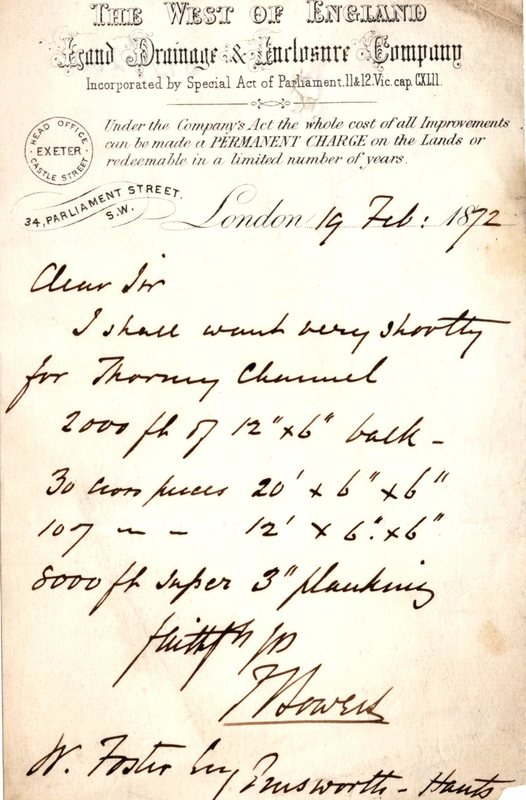 THE WEST OF ENGLAND
Land Drainage & Inclosure Company
Incorporated by Special Act of Parliament.11&12.Vic.cap.CXLII.
HEAD OFFICE
EXETER
CASTLE STREET
Under the Company's Act the whole cost of all Improvements
can be made a PERMANENT CHARGE on the Lands or
redeemable in a limited number of years.
34, PARLIAMENT STREET.
S.W.
London 19 Feb: 1872
Dear Sir
I shall want very shortly
for Thorney Channel
2000 ft of 12" x 6" balk -
30 cross pieces 20' x 6" x 6"
107 " - 12' x 6" x 6"
8000 ft super 3" planking
W. Foster Esq Emsworth - Hants